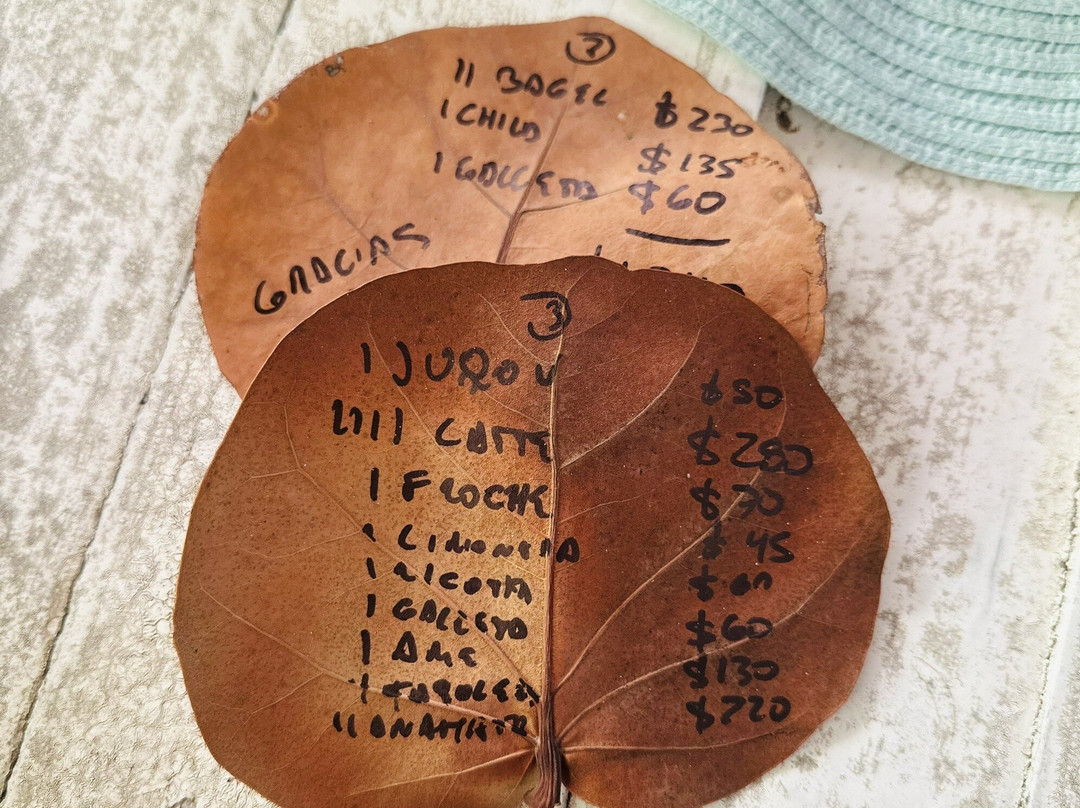 ②
11 BAGEL $230
1 CHILD $135
1 GALLETA $60
GRACIAS
③
1 JUGOV $50
1111 LATTE $280
1 $70
1 LIMONADA $45
1 RICOTTA
1 GALLETA $60
1 AME $130
1 $220
11